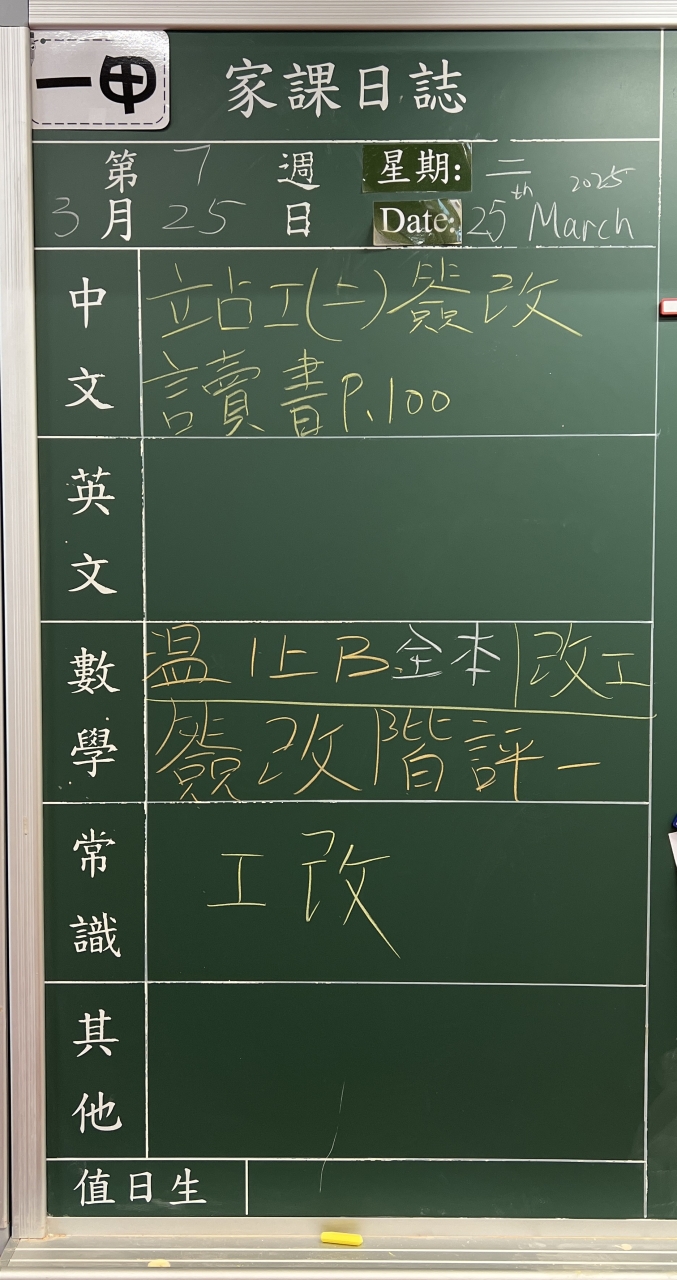 一甲
家課日誌
第 7 週 星期: 二 2025
3 月 25 日 Date: 25th March
中文
站工(二)簽改
讀書P.100
英文
數學
溫 1上B 全本 改工
簽改 階評一
常識
工改
其他
值日生